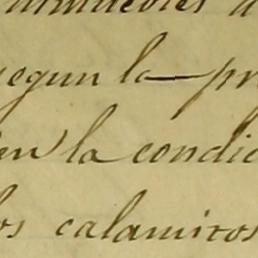 segun la pr
en la condic
os calamitos